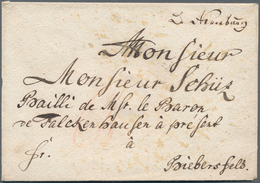 Monsieur
Monsieur Schüz
Bailli de Msr. le Baron
de Falckenhausen à present
à
fr.
Biebersfeld.